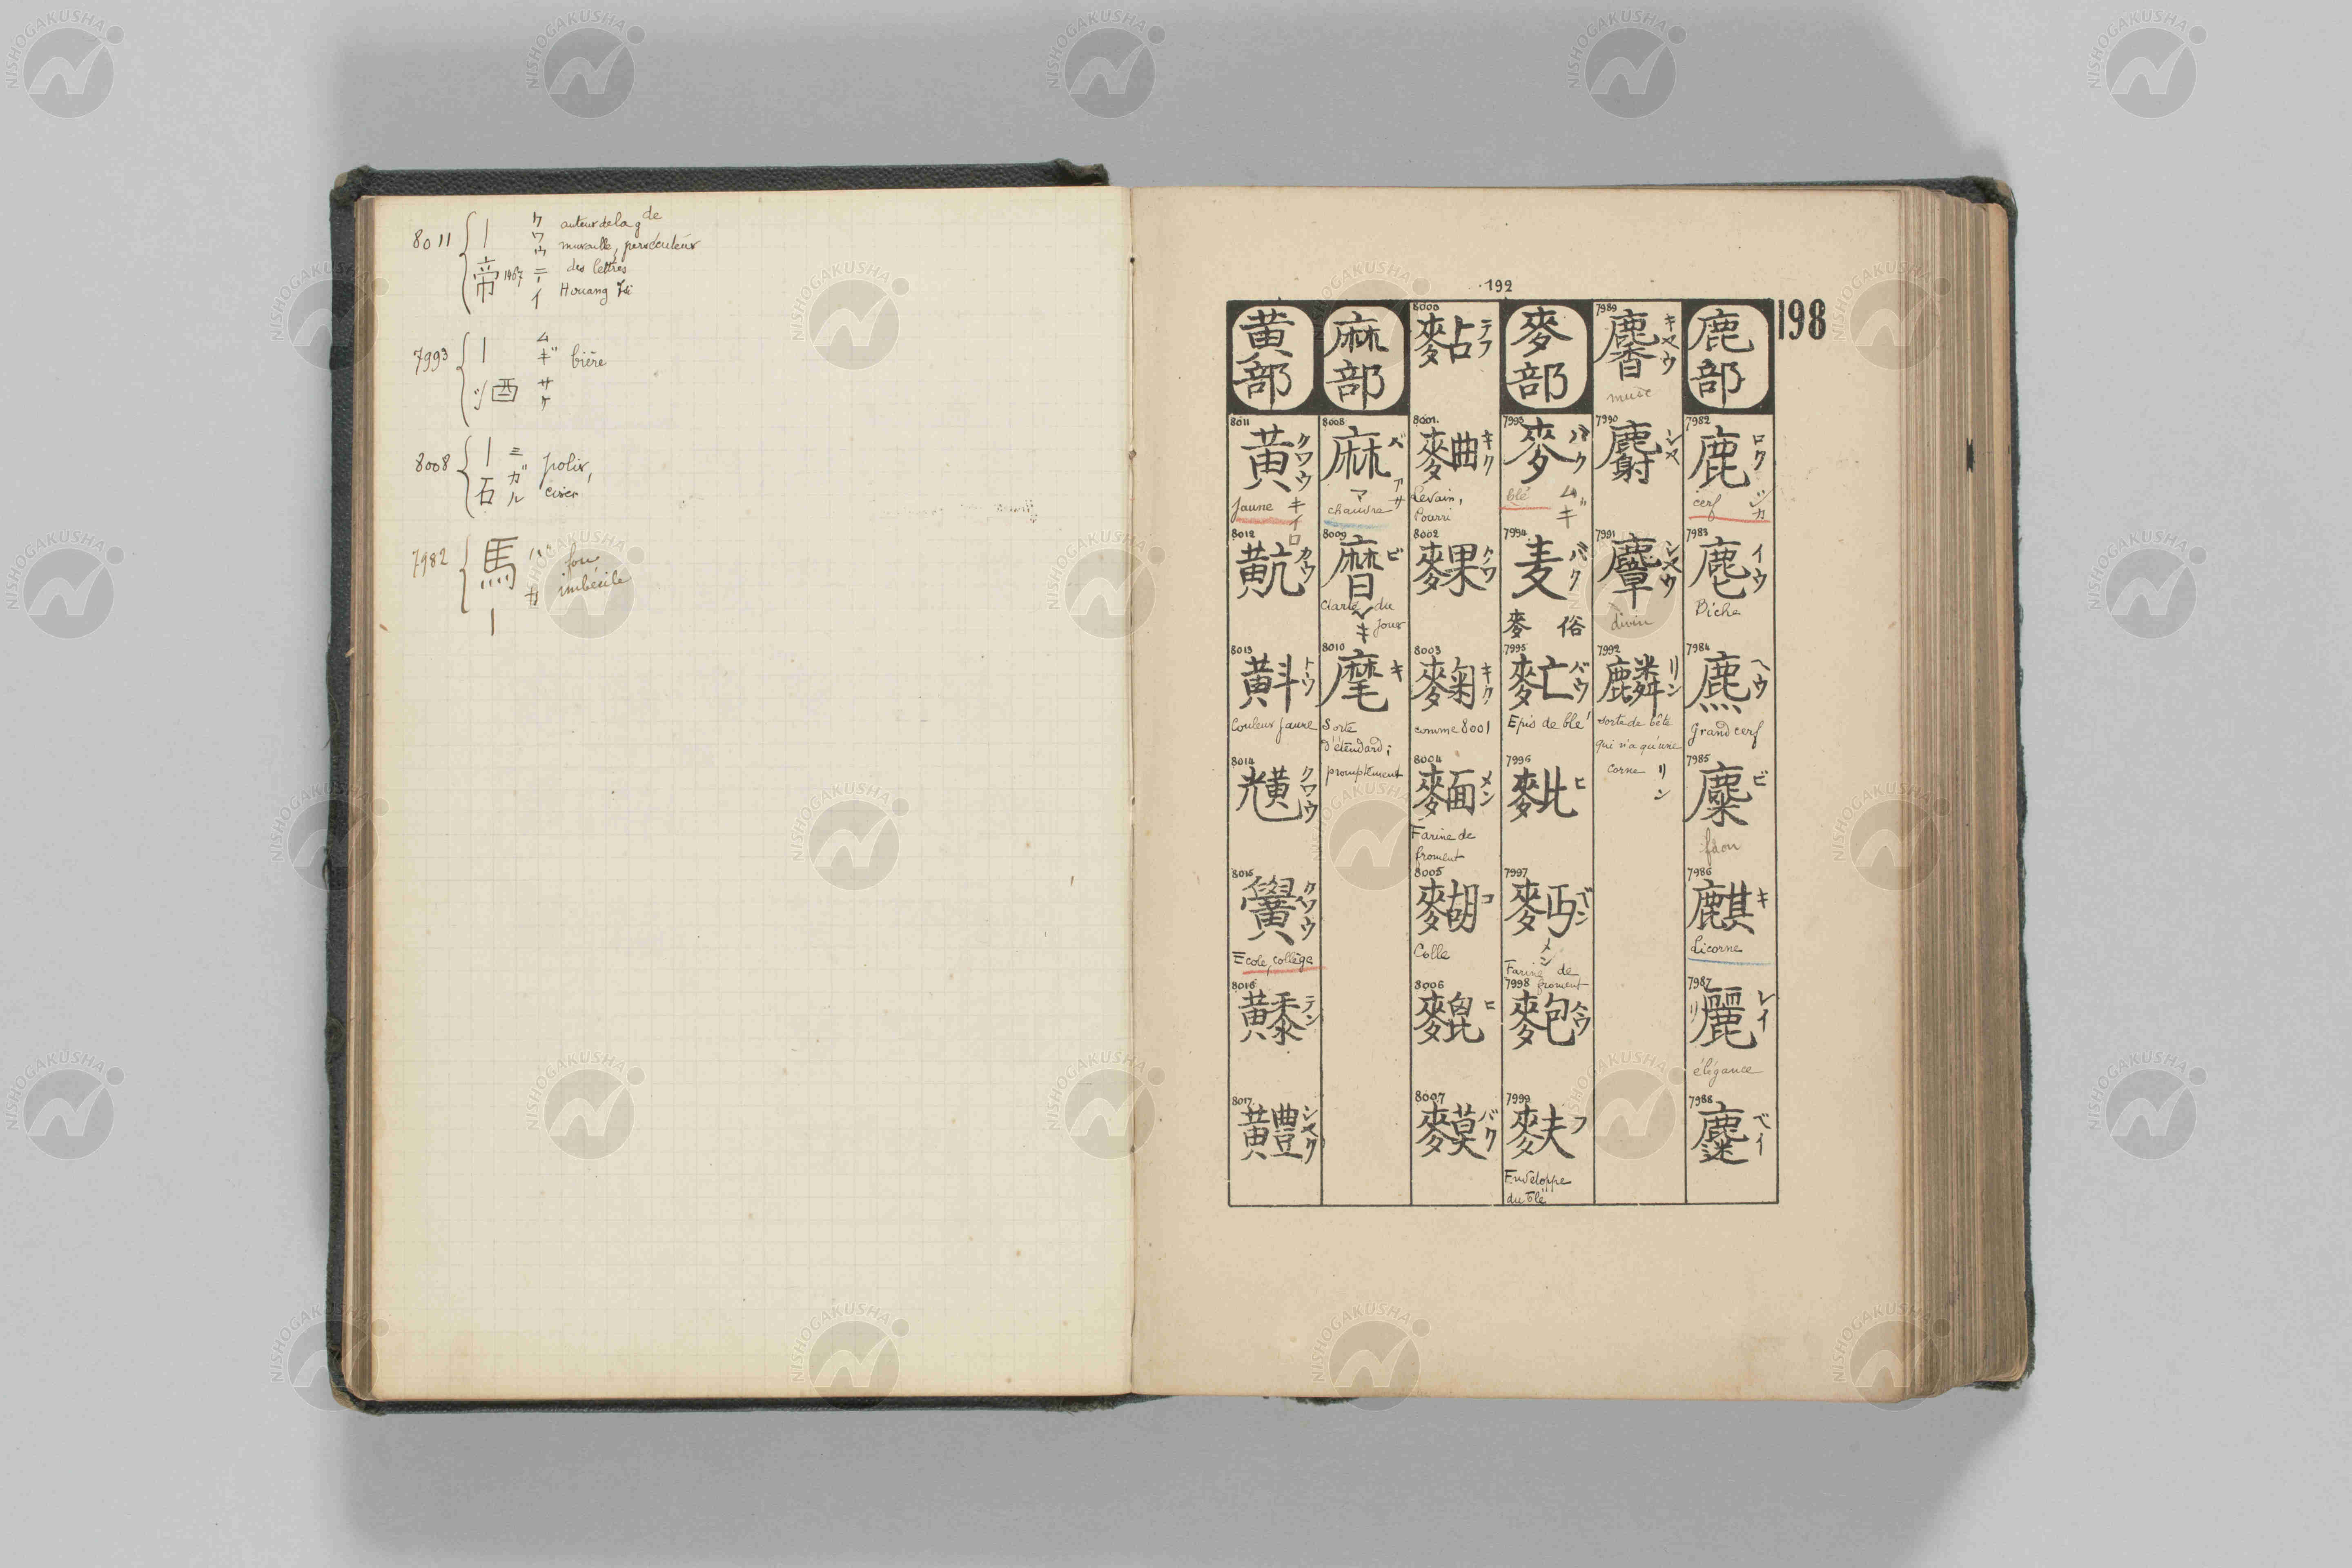 8011 { | クワウ auteur de la gde
muraille, persécuteur
帝 1467 テイ des lettres
Houang Ti
7993 { | ムギ bière
酒 サケ
8008 { | ミガル polir,
石
7982 { 馬 バカ fou
| imbécile
192
198
鹿部
7982 鹿 ロク シカ
cerf
7983 イウ
Biche
7984 ヘウ
Grand cerf
7985 麋 ビ
faon
7986 麒 キ
Licorne
7987 麗 レイ リ
élégance
7988 ベイ
7989 キヤウ
musc
7990 麝 シヤ
7991 シヤウ
divin
7992 麟 リン
sorte de bête
qui n'a qu'une
corne リン
麥部
7993 麥 バク ムギ
blé
7994 麦 バク
麥 俗
7995 バウ
Epis de blé
7996 ヒ
7997 麪 ベン メン
Farine de
froment
7998 ハウ
7999 麩 フ
Enveloppe
du blé
8000 テフ
8001 麯 キク
Levain,
Pourri
8002 クワ
8003 麴 キク
comme 8001
8004 麵 メン
Farine de
froment
8005 コ
Colle
8006 ヒ
8007 バク
麻部
8008 麻 バ マ アサ
chanvre
8009 ビ
Clarté du
jour
8010 麾 キ
Sorte
d'étendard;
promptement
黄部
8011 黄 クワウ キイロ
jaune
8012 カウ
8013 トウ
Couleur jaune
8014 クワウ
8015 黌 クワウ
Ecole, collège
8016 テン
8017
NISHOGAKUSHA